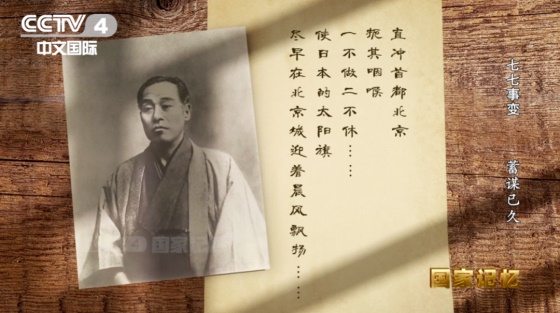 CCTV 4
中文国际
直冲首都北京
扼其咽喉
一不做二不休……
使日本的太阳旗
尽早在北京城迎着晨风飘扬……
七七事变
蓄谋已久
国家记忆
国家记忆